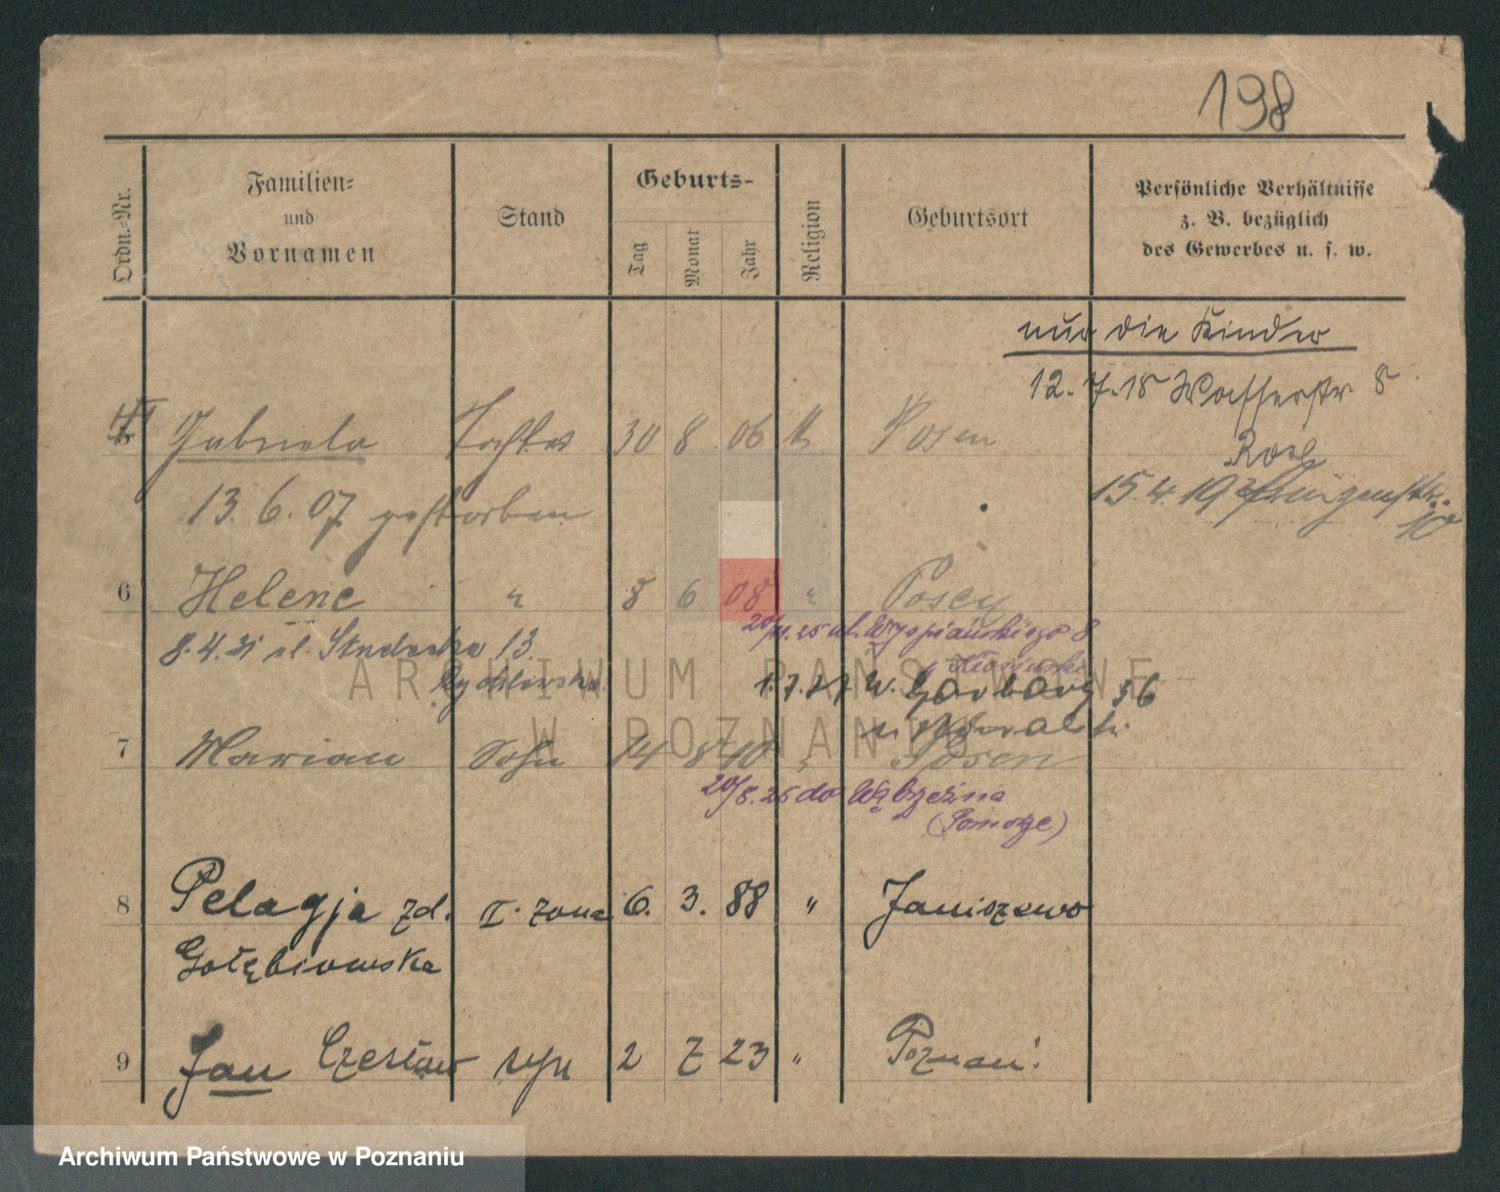 198
Ordn.-Nr.
Familien-
und
Vornamen
Stand
Geburts-
Tag
Monat
Jahr
Religion
Geburtsort
Persönliche Verhältnisse
z. B. bezüglich
des Gewerbes u. s. w.
nur die Kinder
12.7.18 Wasserstr 8
Tochter 30 8 06 k Posen
13.6.07 gestorben
15.4.19
6 Helene " 8 6 08 " Posen
20/11.25 ul. Wyspiańskiego 8
8.4.31 ul. 13
1.7.27 Garbary 56
7 Marian Sohn 14 8 10 " Posen
20/8.25 do Wąbrzeźna
(Pomorze)
8 Pelagja zd. II. żona 6. 3. 88 " Janiszewo
Gołębiowska
9 Jan Czesław syn 2 7 23 " Poznań
ARCHIWUM PAŃSTWOWE
W POZNANIU
Archiwum Państwowe w Poznaniu